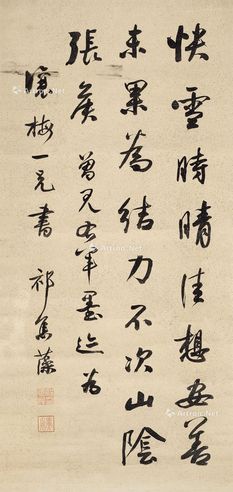 快雪時晴佳想安善
未果為結力不次山陰
張矦 曾見右軍墨迹為
梅一兄書 祁寯藻
Artron.Net